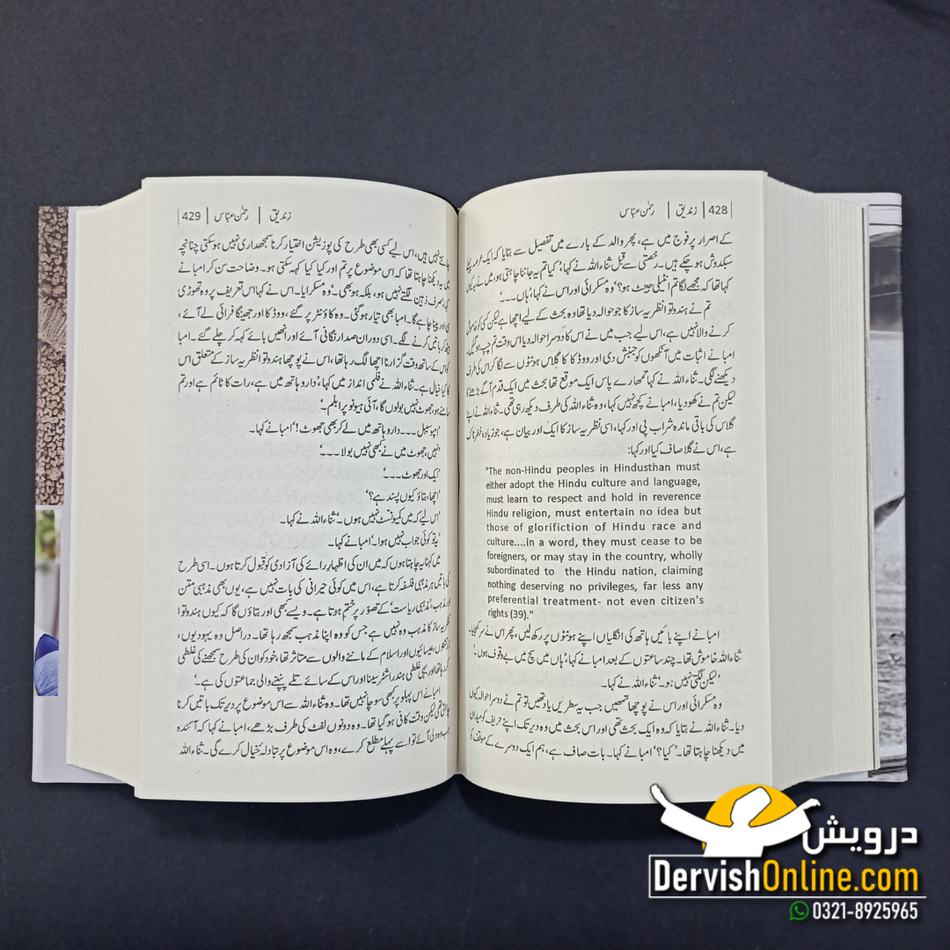 428 | زندیق | رحمٰن عبّاس
کے اصرار پر فوج میں ہے، پھر والد کے بارے میں تفصیل سے بتایا کہ ایک عرصہ پہلے
سبکدوش ہو چکے ہیں۔ رخصتی سے قبل ثناء اللہ نے کہا: 'کیا تم یہ جاننا چاہتی ہو، میں نے کیوں
کہا تھا کہ مجھے لگا تم انٹیلی جینٹ ہو؟' وہ مسکرائی اور اس نے کہا: 'ہاں۔۔۔'
تم نے ہندوتو انظریہ ساز کا جو حوالہ دیا تھا وہ بحث کے لیے اچھا ہے لیکن کسی کو خاموش
کرنے والا نہیں ہے، اس لیے جب میں نے اس کا دوسرا حوالہ دیا اس وقت تم چپ ہو گئیں۔'
امبا نے اثبات میں آنکھوں کو جنبش دی اور ووڈکا کا گلاس ہونٹوں سے لگا کر اس کی طرف
دیکھنے لگی۔ ثناء اللہ نے کہا تمھارے پاس ایک موقع تھا بحث میں ایک قدم آگے بڑھنے کا
لیکن تم نے کھو دیا، امبا نے کچھ نہیں کہا، وہ ثناء اللہ کی طرف دیکھ رہی تھی۔ ثناء اللہ نے اپنے
گلاس کی باقی ماندہ شراب پی اور کہا، اسی نظریہ ساز کا ایک اور بیان ہے، جو زیادہ خطرناک
ہے، اس نے گلا صاف کیا اور کہا:
"The non-Hindu peoples in Hindusthan must
either adopt the Hindu culture and language,
must learn to respect and hold in reverence
Hindu religion, must entertain no idea but
those of glorifiction of Hindu race and
culture....in a word, they must cease to be
foreigners, or may stay in the country, wholly
subordinated to the Hindu nation, claiming
nothing deserving no privileges, far less any
preferential treatment- not even citizen's
rights (39)."
امبا نے اپنے بائیں ہاتھ کی انگلیاں اپنے ہونٹوں پر رکھ لیں، پھر اس نے سر کھجایا۔
ثناء اللہ خاموش تھا۔ چند ساعتوں کے بعد امبا نے کہا: 'ہاں میں سچ میں بے وقوف ہوں۔'
'لیکن لگتی نہیں ہو۔' ثناء اللہ نے کہا۔
وہ مسکرائی اور اس نے پوچھا تمھیں جب یہ سطریں یاد تھیں تو تم نے دوسرا حوالہ کیوں
دیا۔ ثناء اللہ نے بتایا کہ وہ ایک بحث تھی اور اس بحث میں وہ دیر تک اپنے حریف کو میدان
میں دیکھنا چاہتا تھا۔ 'کیا؟' امبا نے کہا۔ بات صاف ہے، ہم ایک دوسرے کے موقف کو
زندیق | رحمٰن عبّاس | 429
جانتے نہیں ہیں، اس لیے کسی بھی طرح کی پوزیشن اختیار کرنا سمجھداری نہیں ہو سکتی چنانچہ
میں یہ دیکھنا چاہتا تھا کہ اس موضوع پر تم اور کیا کیا کہہ سکتی ہو۔ وضاحت سن کر امبا نے
کہا صرف ذہین لگتے نہیں ہو، بلکہ ہو بھی۔' وہ مسکرایا۔ اس نے کہا اس تعریف پر وہ تھوڑی
سی اور پینا چاہے گا۔ امبا بھی تیار ہو گئی۔ وہ کاؤنٹر پر گئے، ووڈکا اور جھینگا فرائی لے آئے،
بیٹھ کر باتیں کرنے لگے۔ اسی دوران صدا رنگانی آئے اور انھیں بائے کہہ کر چلے گئے۔ امبا
کو اس کے ساتھ وقت گزارنا اچھا لگ رہا تھا، اس نے پوچھا ہندوتو انظریہ ساز کے متعلق اس
کا کیا خیال ہے۔ ثناء اللہ نے فلمی انداز میں کہا: 'دارو ہاتھ میں ہے، رات کا ٹائم ہے اور تم
سامنے ہو، جھوٹ نہیں بولوں گا، آئی ہیو نو پرابلم۔'
'امپوسیبل۔۔۔ دارو ہاتھ میں لے کر بھی جھوٹ!' امبا نے کہا۔
'نہیں، جھوٹ میں نے کبھی نہیں بولا۔۔۔'
'ایک اور جھوٹ۔۔۔'
'اچھا، بتاؤ کیوں پسند ہے؟'
'اس لیے کہ میں کمیونسٹ نہیں ہوں۔' ثناء اللہ نے کہا۔
'یہ تو کوئی جواب نہیں ہوا۔' امبا نے کہا۔
میں کہنا یہ چاہتا ہوں کہ میں ان کی اظہارِ رائے کی آزادی کو قبول کرتا ہوں۔ اسی طرح
کی باتیں ہر مذہبی فلسفہ کرتا ہے، اس میں کوئی حیرانی کی بات نہیں ہے، یوں بھی مذہبی متن
اور سبب، مذہبی ریاست کے تصوّر پر ختم ہوتا ہے۔ ویسے کبھی اور بتاؤں گا کہ کیوں ہندوتوا
نظریہ ساز کا مذہب وہ نہیں ہے جس کو وہ اپنا مذہب سمجھ رہا تھا۔ دراصل وہ یہودیوں،
عیسائیوں اور اسلام کے ماننے والوں سے متاثر تھا، خود کو ان کی طرح سمجھنے کی غلطی
کر رہا تھا اور یہی غلطی ہندو راشٹر سینا اور اس کے سائے تلے پنپنے والی جماعتوں کی ہے۔'
امبا نے اس پہلو پر کبھی سوچا نہیں تھا۔ وہ ثناء اللہ سے اس موضوع پر دیر تک باتیں کرنا
چاہتی تھی لیکن وقت کافی ہو گیا تھا۔ وہ دونوں لفٹ کی طرف بڑھے، امبا نے کہا کہ آئندہ
جب وہ دلی آئے تو اسے پہلے مطلع کرے، وہ اس موضوع پر تبادلۂ خیال کرے گی۔ ثناء اللہ
درویش
DervishOnline.com
0321-8925965